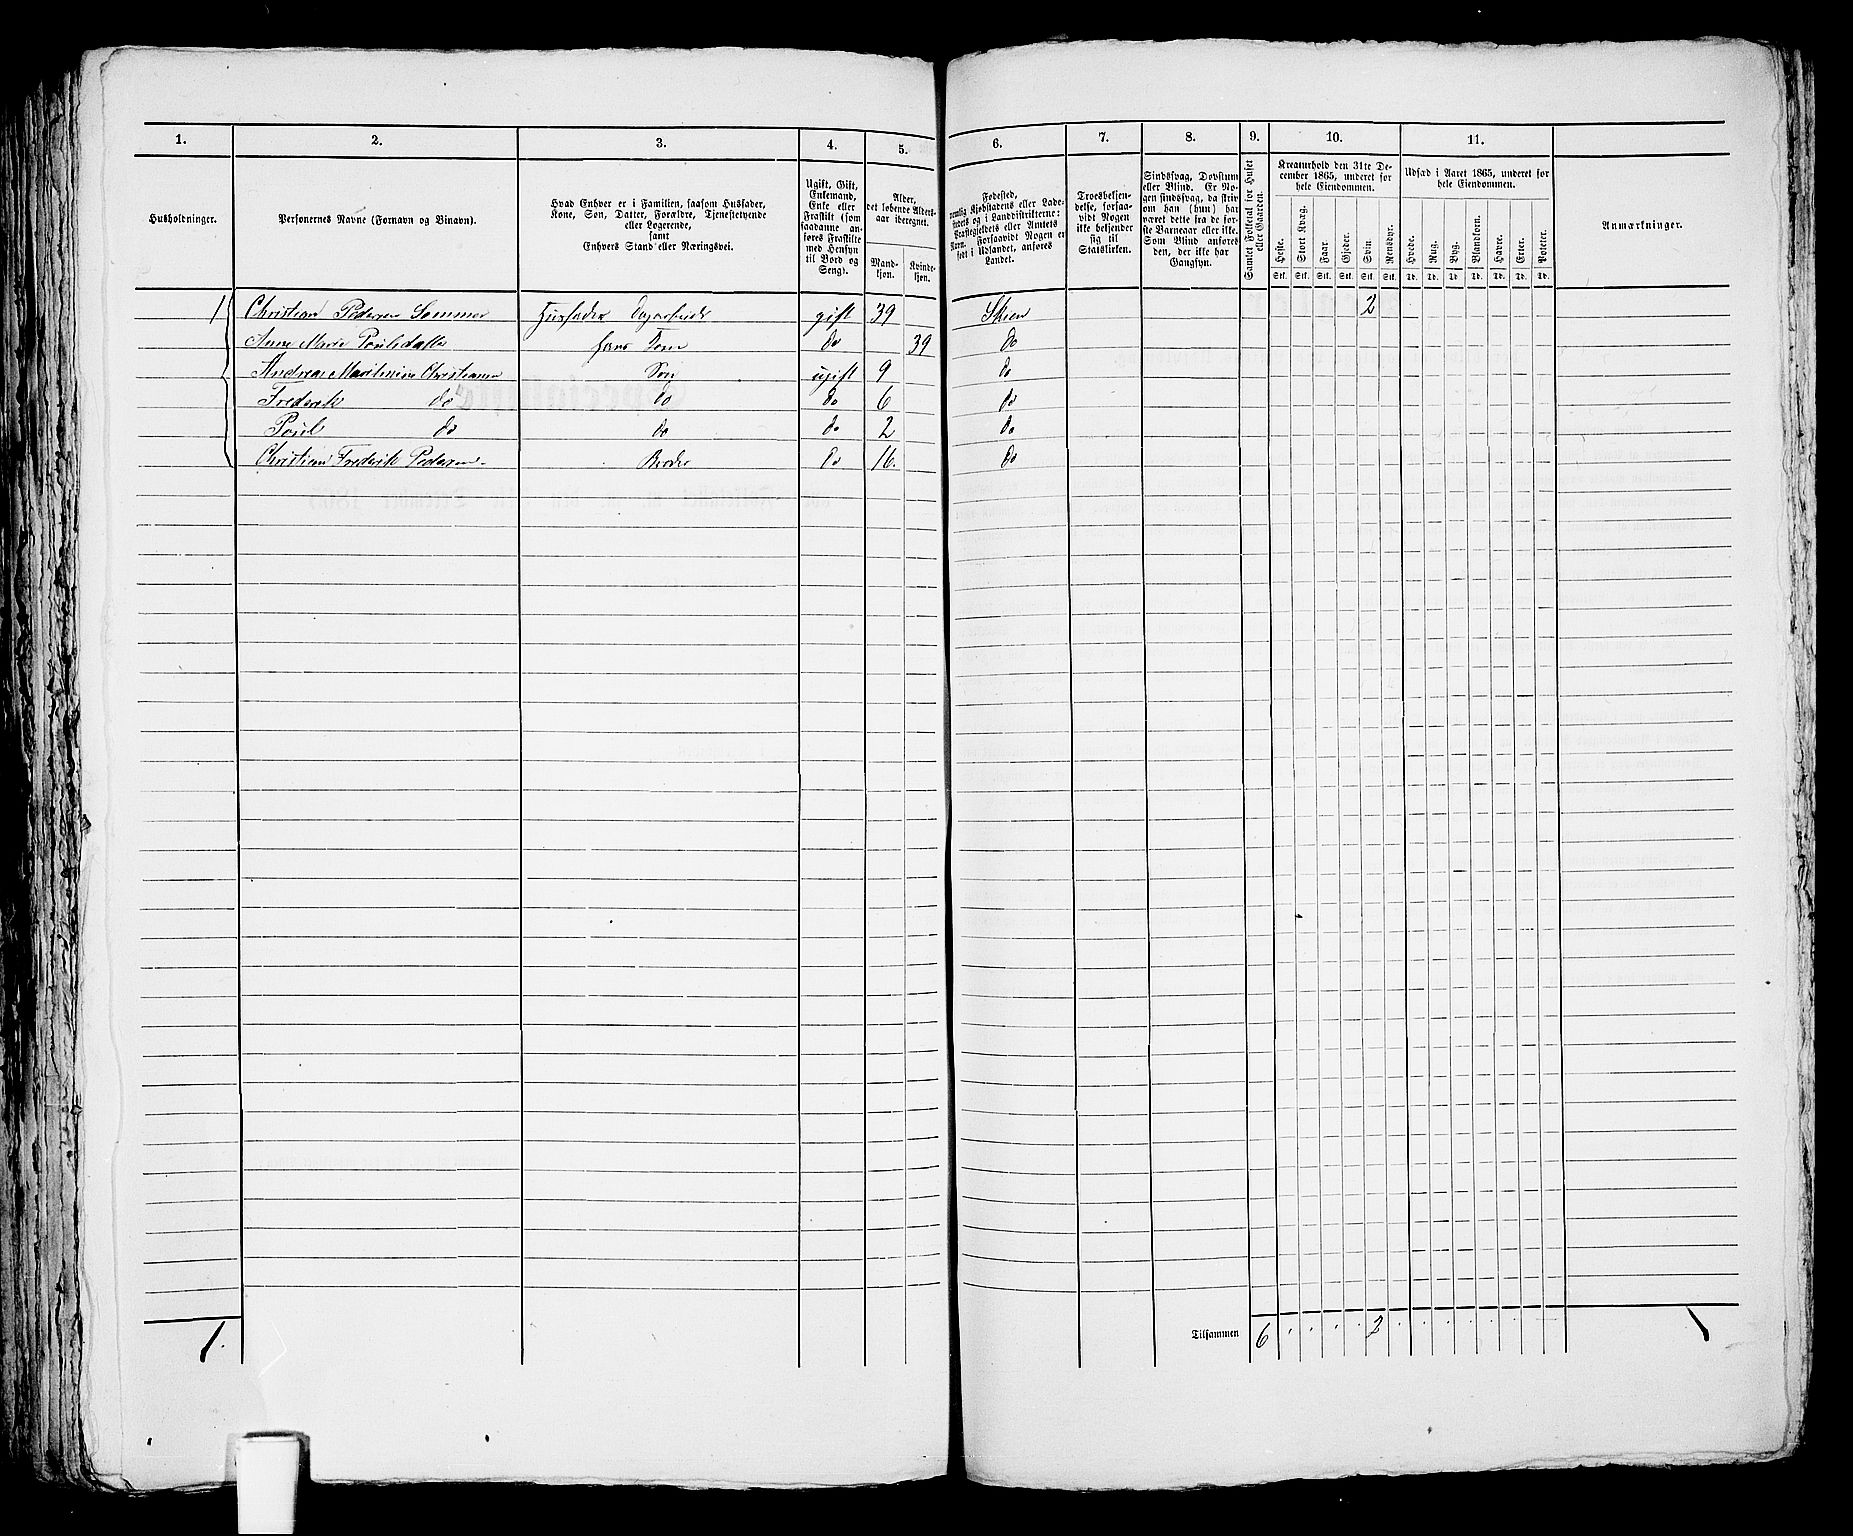 1. 2. 3. 4. 5. 6. 7. 8. 9. 10. 11.
Husholdninger.
Personernes Navne (Fornavn og Binavn).
Hvad Enhver er i Familien, saasom Husfader,
Kone, Søn, Datter, Forældre, Tjenestetyende
eller Logerende,
samt
Enhvers Stand eller Næringsvei.
Ugift, Gift,
Enkemand,
Enke eller
Fraskilt (som
saadanne an-
føres Fraskilte
med Hensyn
til Bord og
Seng).
Alder,
det løbende Alders-
aar iberegnet.
Mand-
kjøn.
Kvinde-
kjøn.
Fødested,
nemlig Kjøbstadens eller Lade-
stedets og i Landdistrikterne:
Præstegjeldets eller Amtets
Navn. Forsaavidt Nogen er
født i Udlandet, anføres
Landet.
Troesbekjen-
delse, forsaa-
vidt Nogen
ikke bekjender
sig til
Statskirken.
Sindssvag, Døvstum
eller Blind. Er No-
gen sindssvag, da skriv
om han (hun) har
været dette fra de før-
ste Barneaar eller ikke.
Som Blind anføres
den, der ikke har
Gangsyn.
Samlet Folketal for Huset
eller Gaarden.
Kreaturhold den 31te De-
cember 1865, underet for
hele Eiendommen.
Heste. Stort Kvæg. Faar. Gjeder. Svin. Rensdyr.
Stk. Stk. Stk. Stk. Stk. Stk.
Udsæd i Aaret 1865, underet for
hele Eiendommen.
Hvede. Rug. Byg. Blandkorn. Havre. Erter. Poteter.
Td. Td. Td. Td. Td. Td. Td.
Anmærkninger.
1 Christian Pedersen Sommer Husfader Dagarbeide gift 39 Skien 2
Anne Marie Poulsdatter hans Kone do 39 do
Andreas Martinius Christiansen Søn ugift 9 do
Frederik do do do 6 do
Poul do do do 2 do
Christian Frederik Pedersen Broder do 16. do
1. Tilsammen 6 2